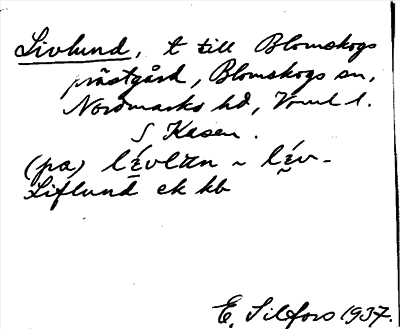 Livlund, t till Blomskogs
prästgård, Blomskogs sn,
Nordmarks hd, Vrml l.
S Kasen.
(pa) lévlωn ~ lév-
Liflund ek kb
E. Silfors 1937.